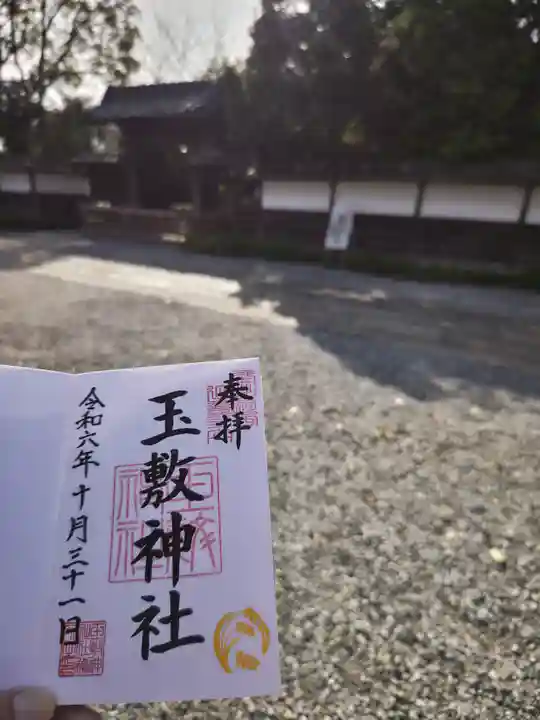 奉拝
玉敷神社
令和六年十月三十一日